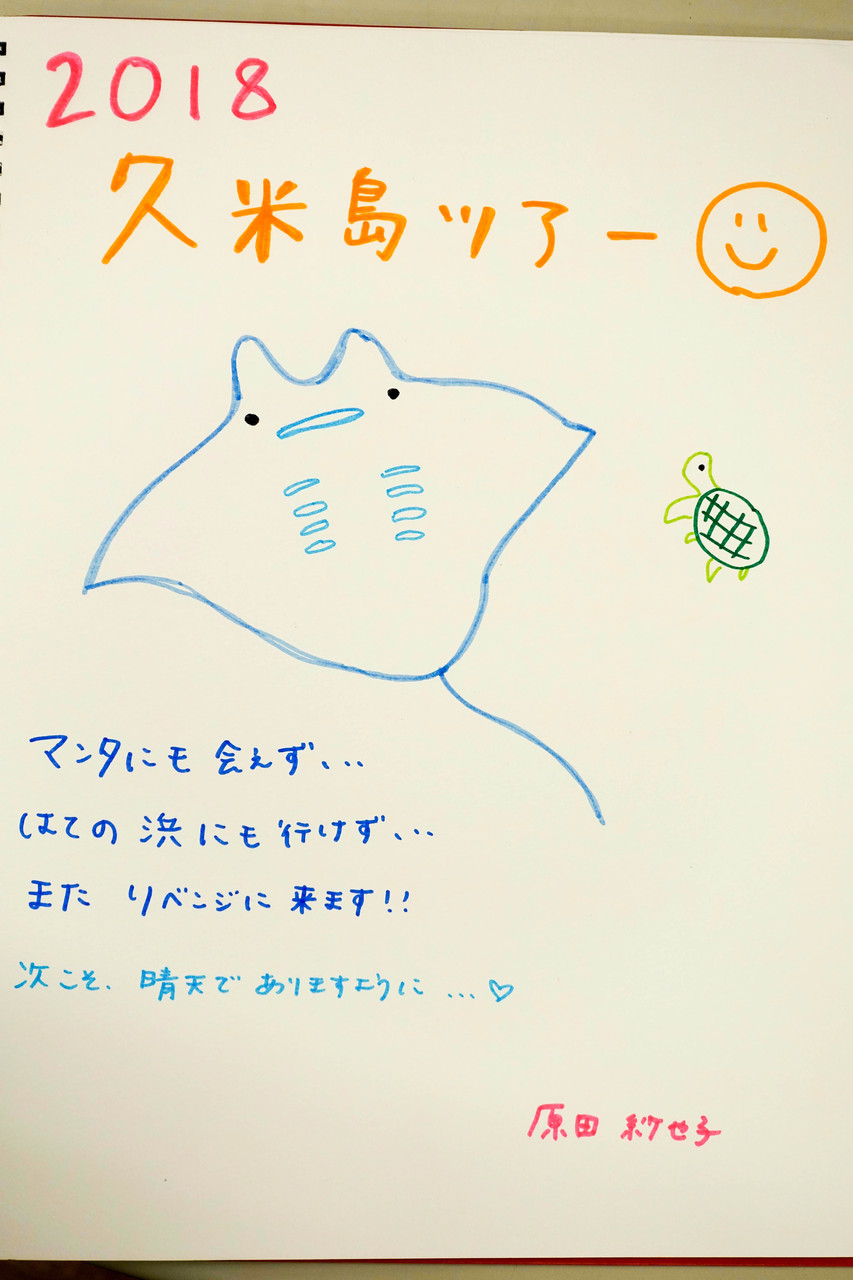 2018
久米島ツアー
マンタにも会えず...
はての浜にも行けず...
また リベンジに来ます!!
次こそ、晴天でありますように...♡
原田 紗世子